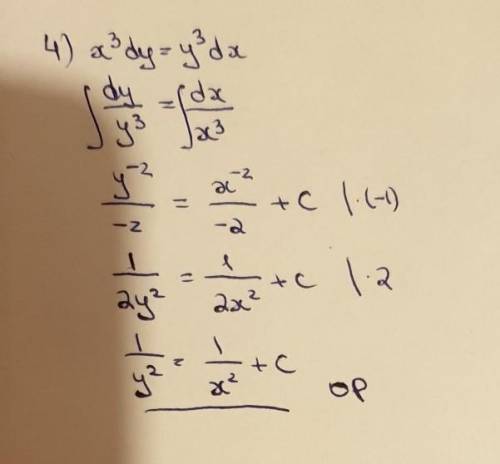 4) x³dy = y³dx
∫ dy/y³ = ∫ dx/x³
y⁻²/-2 = x⁻²/-2 + C |·(-1)
1/2y² = 1/2x² + C |·2
1/y² = 1/x² + C OP